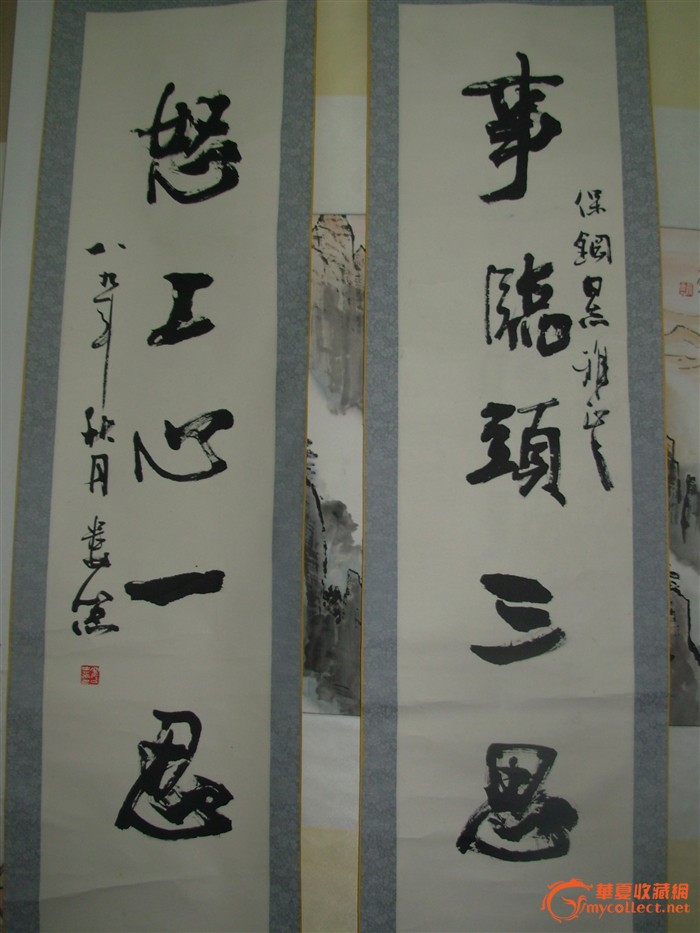 事臨頭三思
保鋼兄雅正
怒上心一忍
八九年秋月
華夏收藏網
mycollect.net